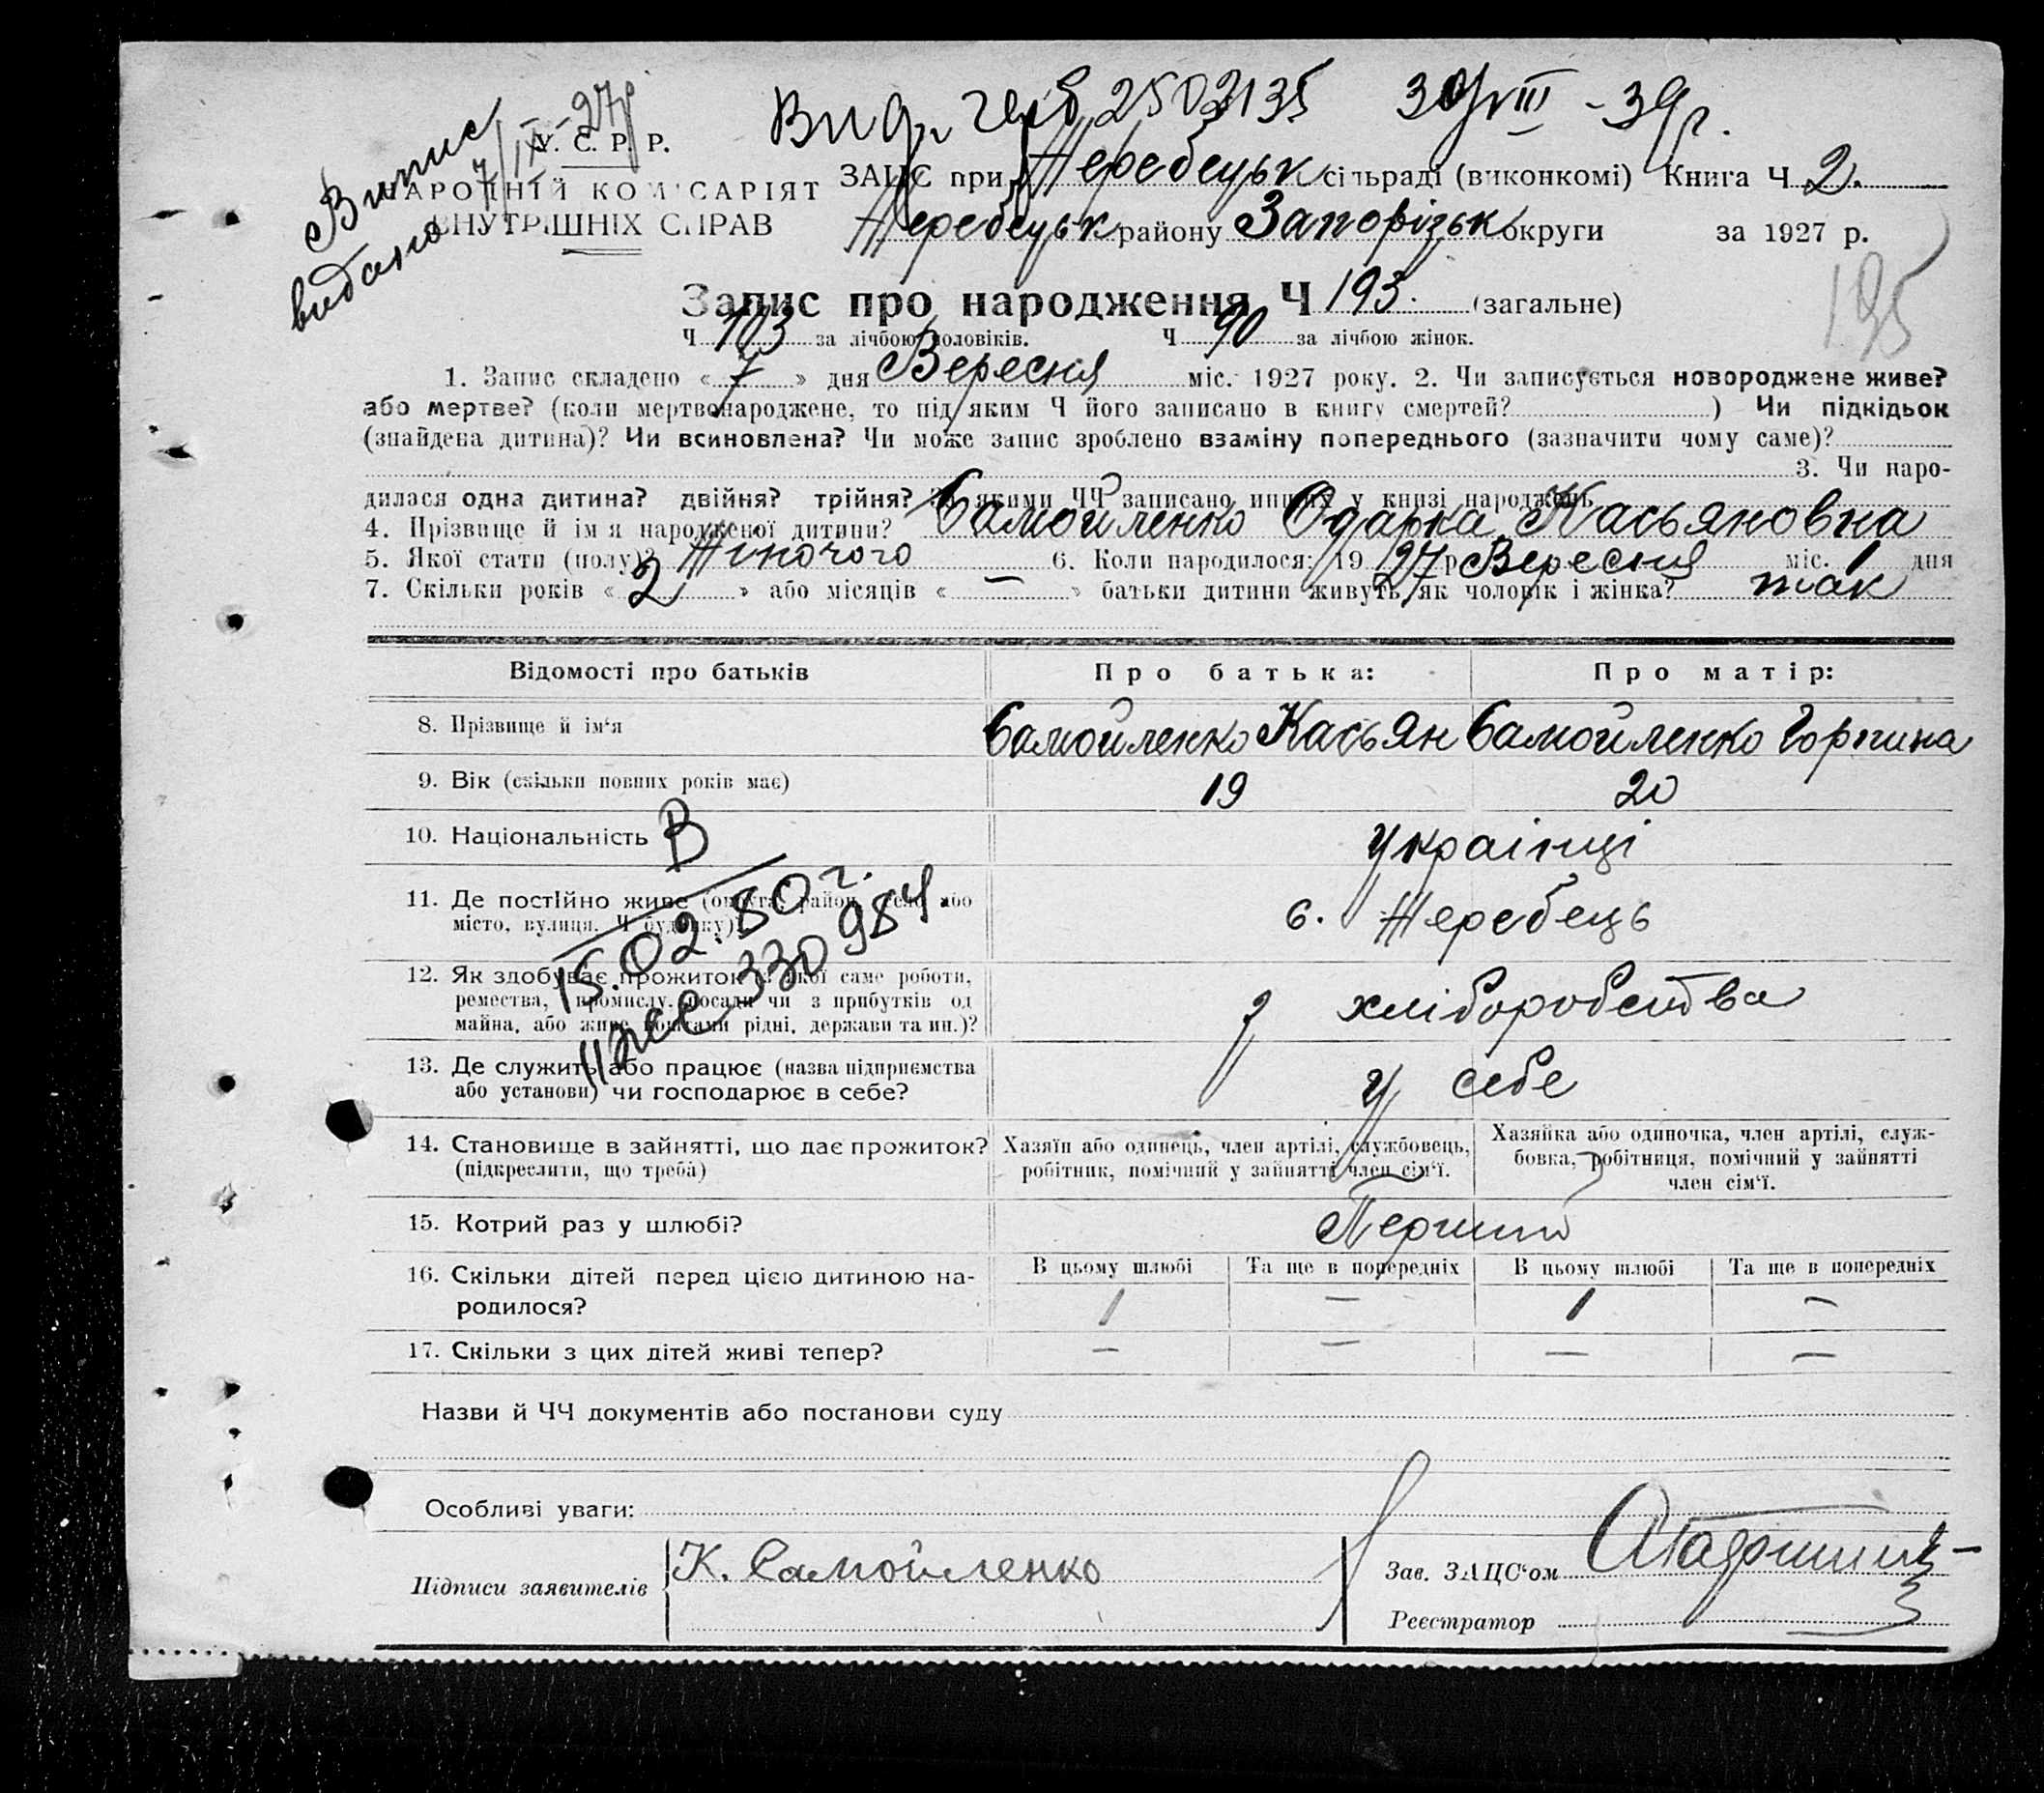 Випис
видано 7/IX-27р
Вид. 2503135 30/VIII-39р.
У. С. Р. Р.
НАРОДНІЙ КОМІСАРІЯТ
ВНУТРІШНІХ СПРАВ
ЗАЦС при Жеребецьк сільраді (виконкомі) Книга Ч 2.
Жеребецьк району Запорізьк округи за 1927 р.
195
Запис про народження Ч 193. (загальне)
Ч 103 за лічбою чоловіків. Ч 90 за лічбою жінок.
1. Запис складено « 7 » дня Вересня міс. 1927 року. 2. Чи записується новороджене живе?
або мертве? (коли мертвонароджене, то під яким Ч його записано в книгу смертей? ) Чи підкідьок
(знайдена дитина)? Чи всиновлена? Чи може запис зроблено взаміну попереднього (зазначити чому саме)?
3. Чи наро-
дилася одна дитина? двійня? трійня? За якими ЧЧ записано инших у книзі народжень
4. Прізвище й ім я народженої дитини? Самойленко Одарка Касьяновна
5. Якої стати (полу)? Жіночого 6. Коли народилося: 19 27 р Вересня міс. 1 дня
7. Скільки років « 2 » або місяців « — » батьки дитини живуть як чоловік і жінка? так
Відомості про батьків Про батька: Про матір:
8. Прізвище й ім'я Самойленко Касьян Самойленко Горпина
9. Вік (скільки повних років має) 19 20
10. Національність Українці
В
15.02.80 г.
330984
11. Де постійно живе (округа, район, село або
місто, вулиця, Ч будинку)? с. Жеребець
12. Як здобуває прожиток (з якої саме роботи,
ремества, промислу, посади чи з прибутків од
майна, або живе коштами рідні, держави та ин.)? з хліборобства
13. Де служить або працює (назва підприємства
або установи) чи господарює в себе? у себе
14. Становище в зайнятті, що дає прожиток?
(підкреслити, що треба)
Хазяїн або одинець, член артілі, службовець,
робітник, помічний у зайнятті член сім'ї.
Хазяйка або одиночка, член артілі, служ-
бовка, робітниця, помічний у зайнятті
член сім'ї.
15. Котрий раз у шлюбі? Перший
16. Скільки дітей перед цією дитиною на-
родилося?
В цьому шлюбі Та ще в попередніх В цьому шлюбі Та ще в попередніх
1 — 1 —
17. Скільки з цих дітей живі тепер? — — — —
Назви й ЧЧ документів або постанови суду
Особливі уваги:
Підписи заявителів К. Самойленко
Зав. ЗАЦС'ом
Реєстратор